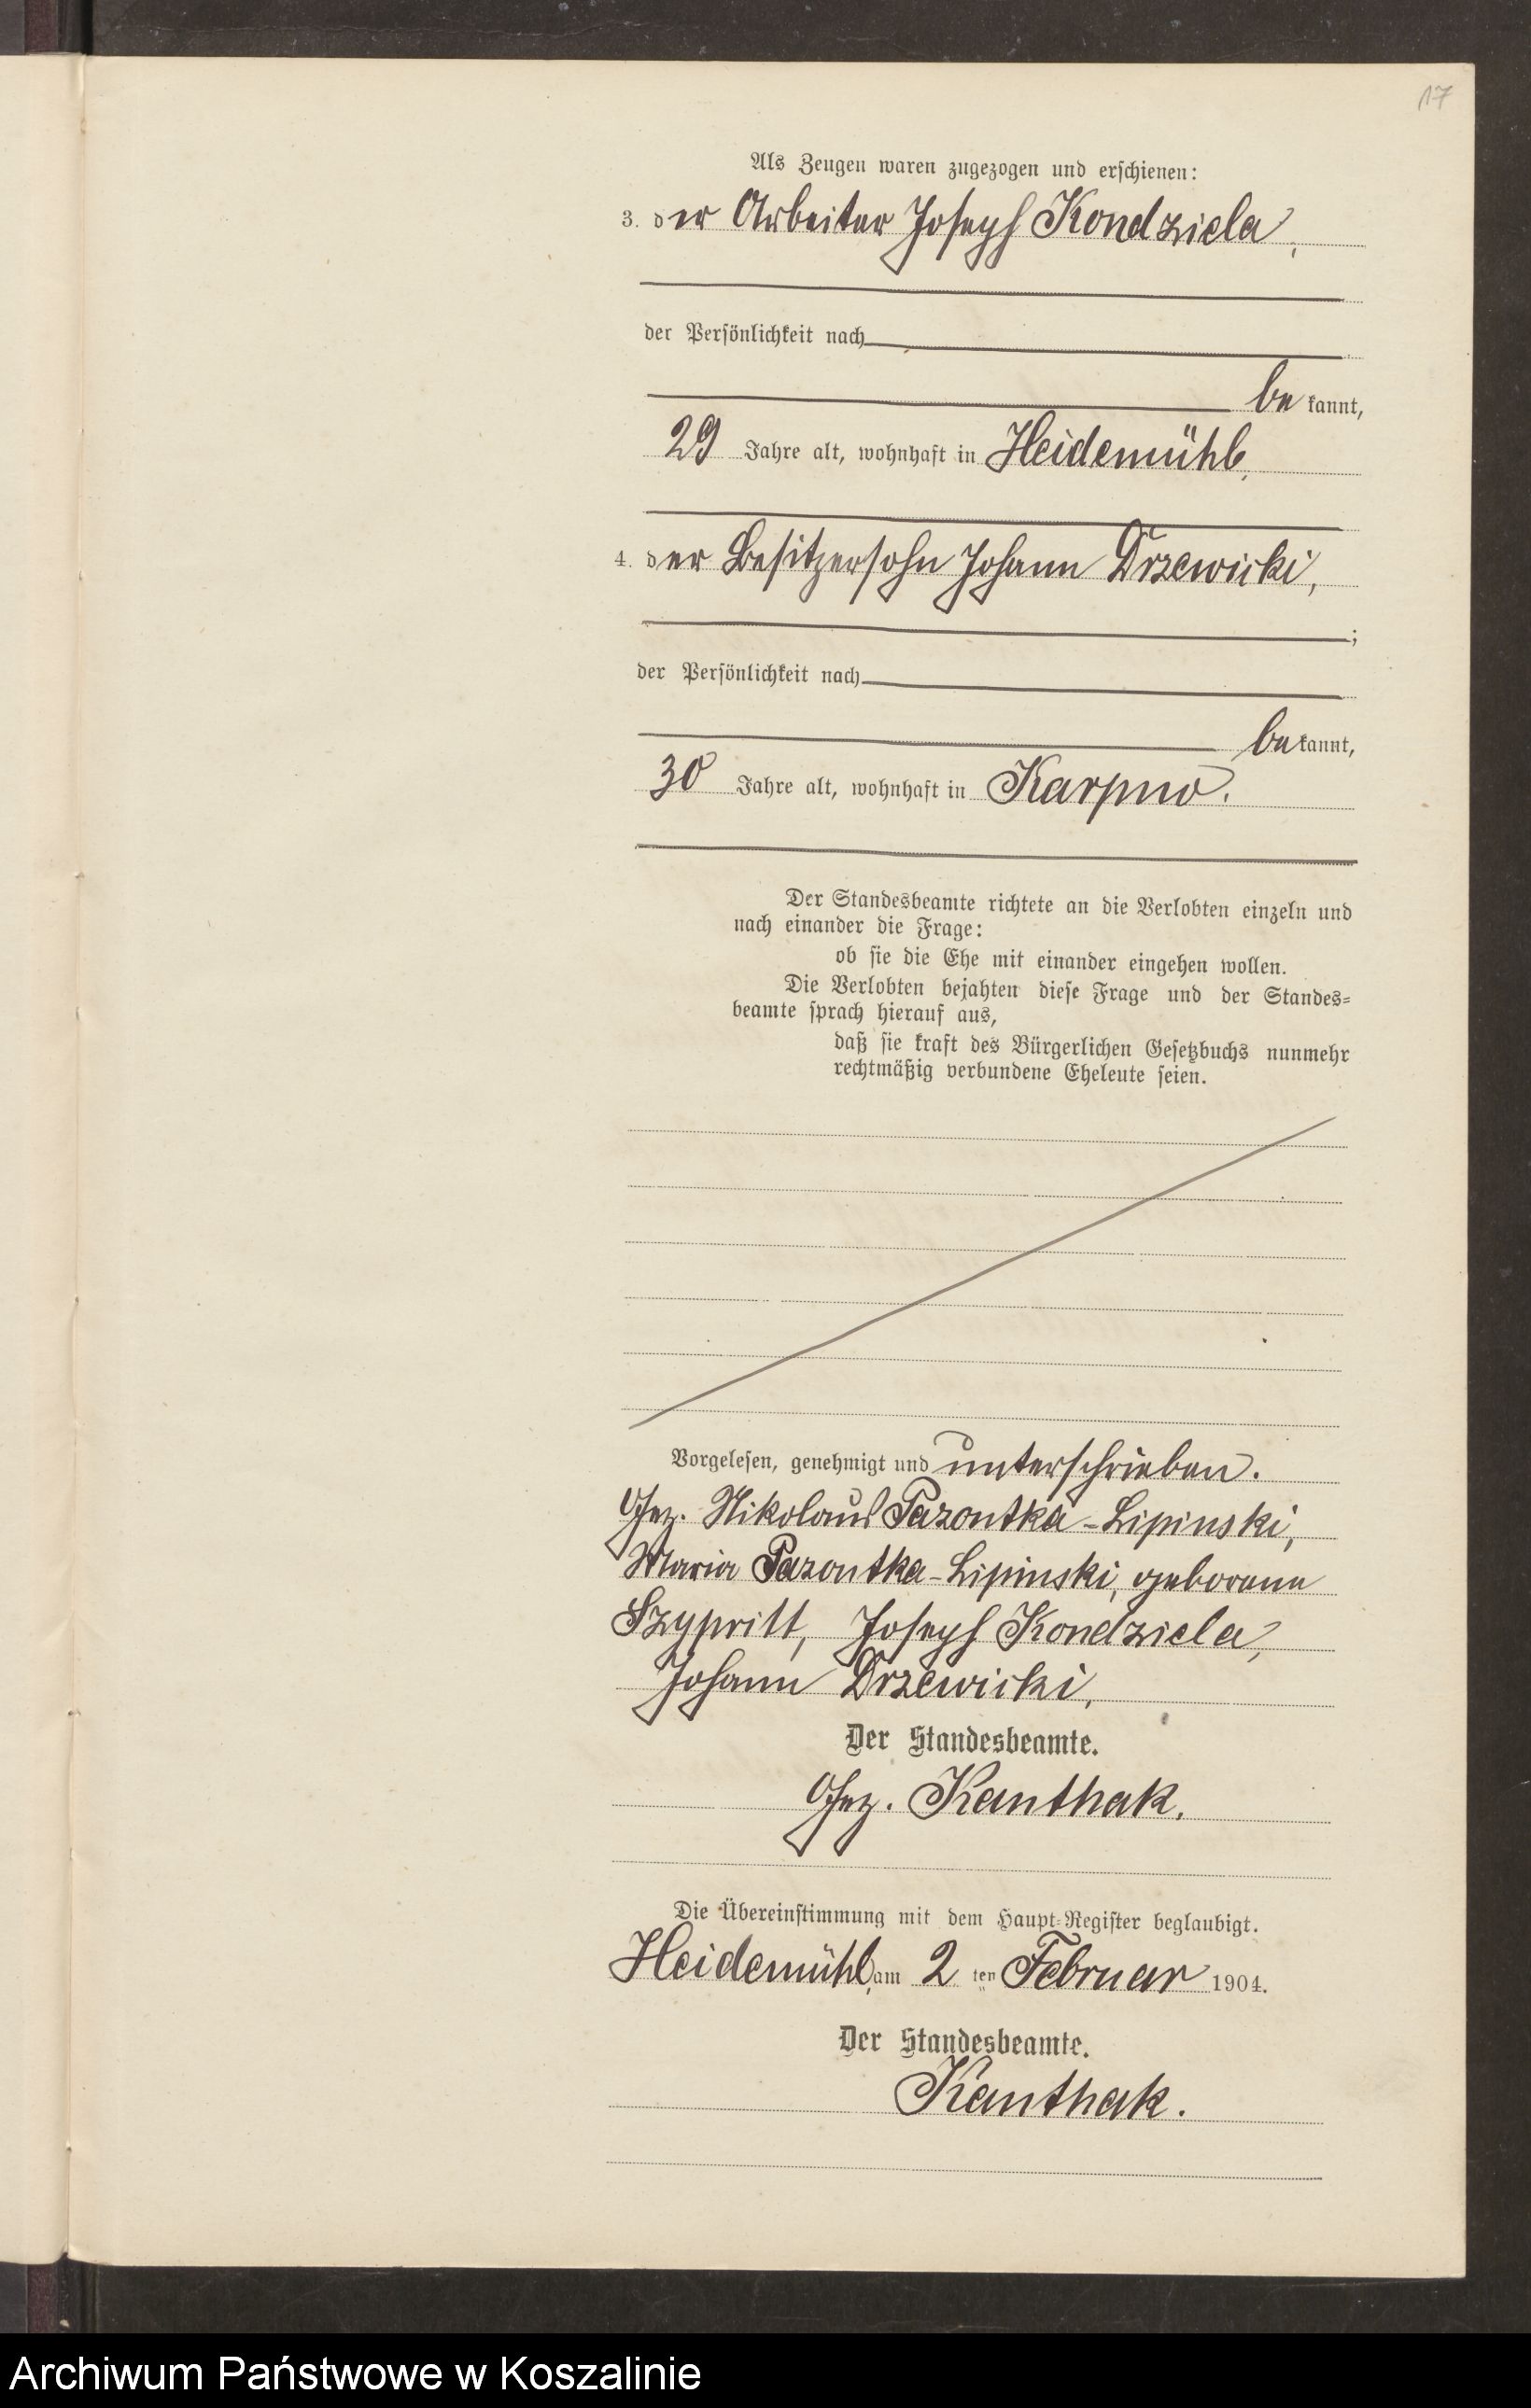 17
Als Zeugen waren zugezogen und erschienen:
3. der Arbeiter Joseph Kondziela,
der Persönlichkeit nach
bekannt,
29 Jahre alt, wohnhaft in Heidemühl,
4. der Besitzersohn Johann Drzewicki,
;
der Persönlichkeit nach
bekannt,
30 Jahre alt, wohnhaft in Karpno.
Der Standesbeamte richtete an die Verlobten einzeln und
nach einander die Frage:
ob sie die Ehe mit einander eingehen wollen.
Die Verlobten bejahten diese Frage und der Standes=
beamte sprach hierauf aus,
daß sie kraft des Bürgerlichen Gesetzbuchs nunmehr
rechtmäßig verbundene Eheleute seien.
Vorgelesen, genehmigt und unterschrieben.
Gez. Nikolaus Pazontka-Lipinski,
Maria Pazontka-Lipinski, geborene
Joseph Kondziela,
Johann Drzewicki,
Der Standesbeamte.
Gez. Kanthak.
Die Übereinstimmung mit dem Haupt=Register beglaubigt.
Heidemühl, am 2 ten Februar 1904.
Der Standesbeamte.
Kanthak.
Archiwum Państwowe w Koszalinie